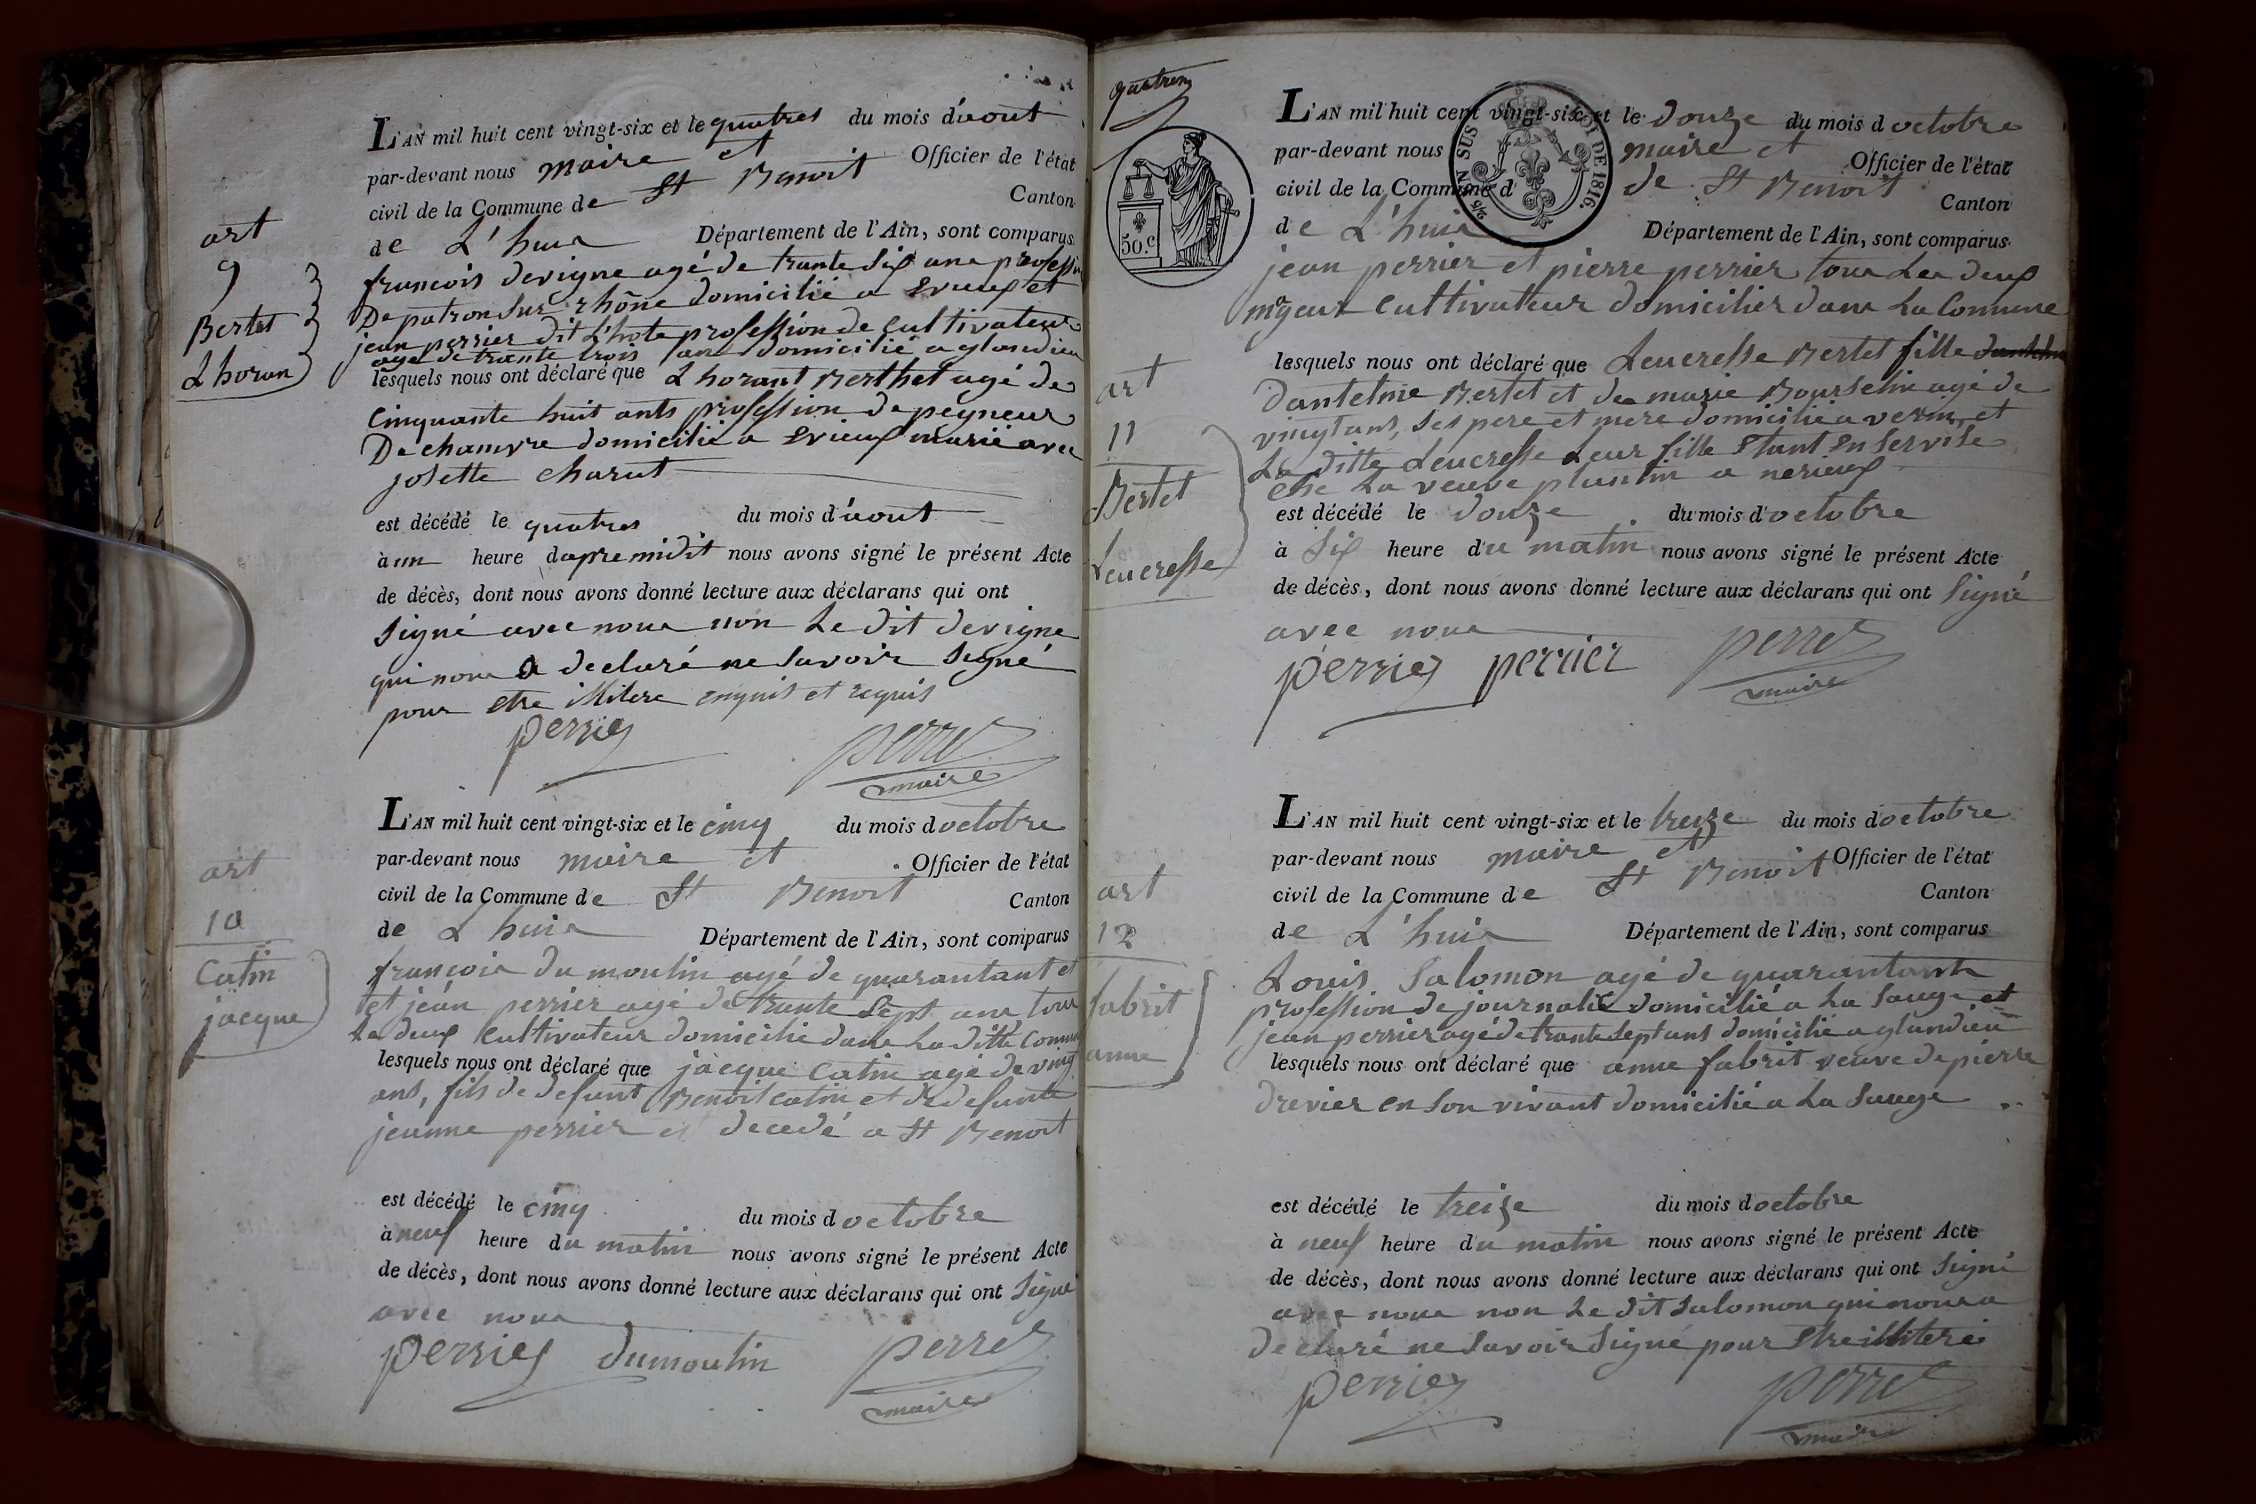 L'AN mil huit cent vingt-six et le quatres du mois d'aout
par-devant nous maire et Officier de l'état
civil de la Commune de St Benoit Canton
de L'huis Département de l'Ain, sont comparus
art
9
Bertet
Lhoran
francois devigne agé de trante six ans profession
De patron sur rhône domicilié a Evieux et
jean perrier dit L'hote profession de cultivateur
agé de trante trois ans domicilié a glandieu
lesquels nous ont déclaré que Lhorant Berthet agé de
cinquante huit ants profession de peyneur
De chamvre domicilié a Evieux marié avec
josette charut
est décédé le quatres du mois d'aout
à un heure d'apremidit nous avons signé le présent Acte
de décès, dont nous avons donné lecture aux déclarans qui ont
signé avec nous non Le dit devigne
qui nous a declaré ne savoir signé
pour etre illitere enquis et requis
perrier perret
maire
L'AN mil huit cent vingt-six et le cinq du mois d octobre
par-devant nous maire et Officier de l'état
civil de la Commune de St Benoit Canton
de L'huis Département de l'Ain, sont comparus
art
10
Catin
jacque
francois du moulin agé de quarantant et
et jean perrier agé de trante sept ans tous
Les deux cultivateur domicilié dans La ditte Commune
lesquels nous ont déclaré que jacque Catin agé de vingt
ans, fils de defunt Benoit catin et de defunte
jeanne perrier et decedé a St Benoit
est décédé le cinq du mois d octobre
à neuf heure du matin nous avons signé le présent Acte
de décès, dont nous avons donné lecture aux déclarans qui ont signé
avec nous
perrier dumoulin perret
maire
50.c
DE 1816.
L'AN mil huit cent vingt-six et le douze du mois d octobre
par-devant nous maire et Officier de l'état
civil de la Commune d de St Benoit Canton
de L'huis Département de l'Ain, sont comparus
jean perrier et pierre perrier tous Les deux
majeur cultivateur domicilier dans La Commune
art
11
Bertet
Leucresse
lesquels nous ont déclaré que Leucresse Bertet fille
Dantelme Bertet et de marie Bourselin agé de
vingt ans, ses pere et mere domicilié a verin et
La ditte Leucresse Leur fille Etant en servise
chè La veuve plantin a nerieux
est décédé le douze du mois d'octobre
à six heure du matin nous avons signé le présent Acte
de décès, dont nous avons donné lecture aux déclarans qui ont signé
avec nous
perrier perrier perret
maire
L'AN mil huit cent vingt-six et le treize du mois d'octobre
par-devant nous maire et Officier de l'état
civil de la Commune de St Benoit Canton
de L'huis Département de l'Ain, sont comparus
art
12
fabrit
anne
Louis Salomon agé de quarantante
profession de journalié domicilié a La sauge et
jean perrier agé de trante sept ans domicilié a glandieu
lesquels nous ont déclaré que anne fabrit veuve de pierre
drevier en son vivant domicilié a La sauge
est décédé le treize du mois d octobre
à neuf heure du matin nous avons signé le présent Acte
de décès, dont nous avons donné lecture aux déclarans qui ont signé
avec nous non Le dit salomon qui nous a
declaré ne savoir signé pour Etre illiteré
perrier perret
maire